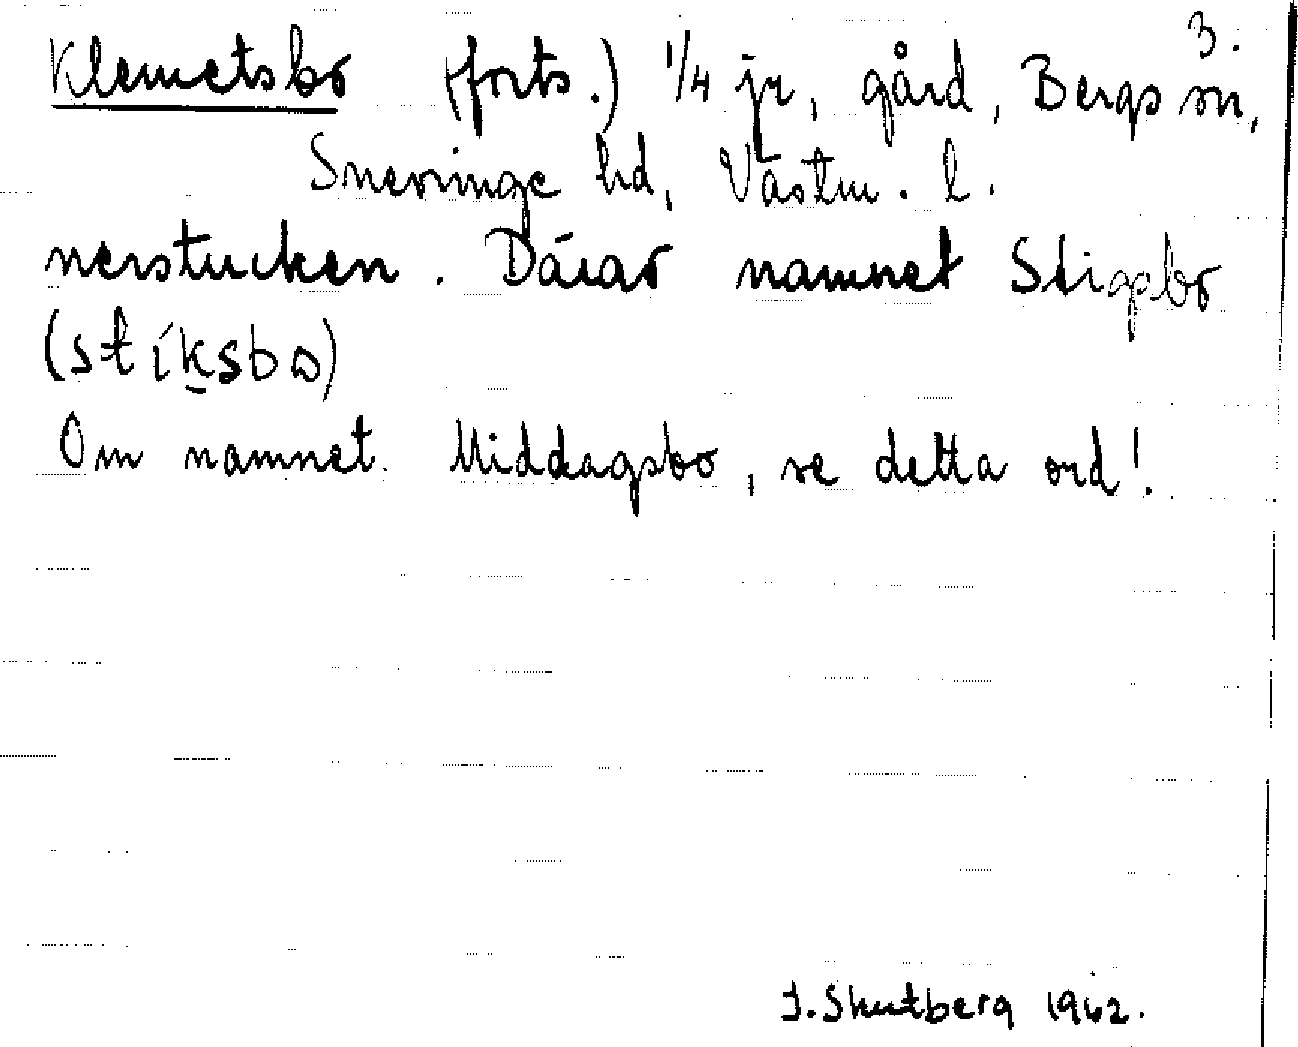 3.
Klemetsbo (forts.) 1/4 jr, gård, Bergs sn,
Snevringe hd, Västm. l.
nerstucken. Därav namnet Stigsbo
(stiksbo)
Om namnet Middagsbo, se detta ord!
J. Skutberg 1962.